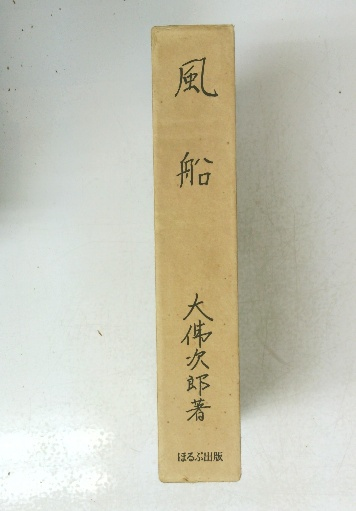 風船
大佛次郎著
ほるぷ出版